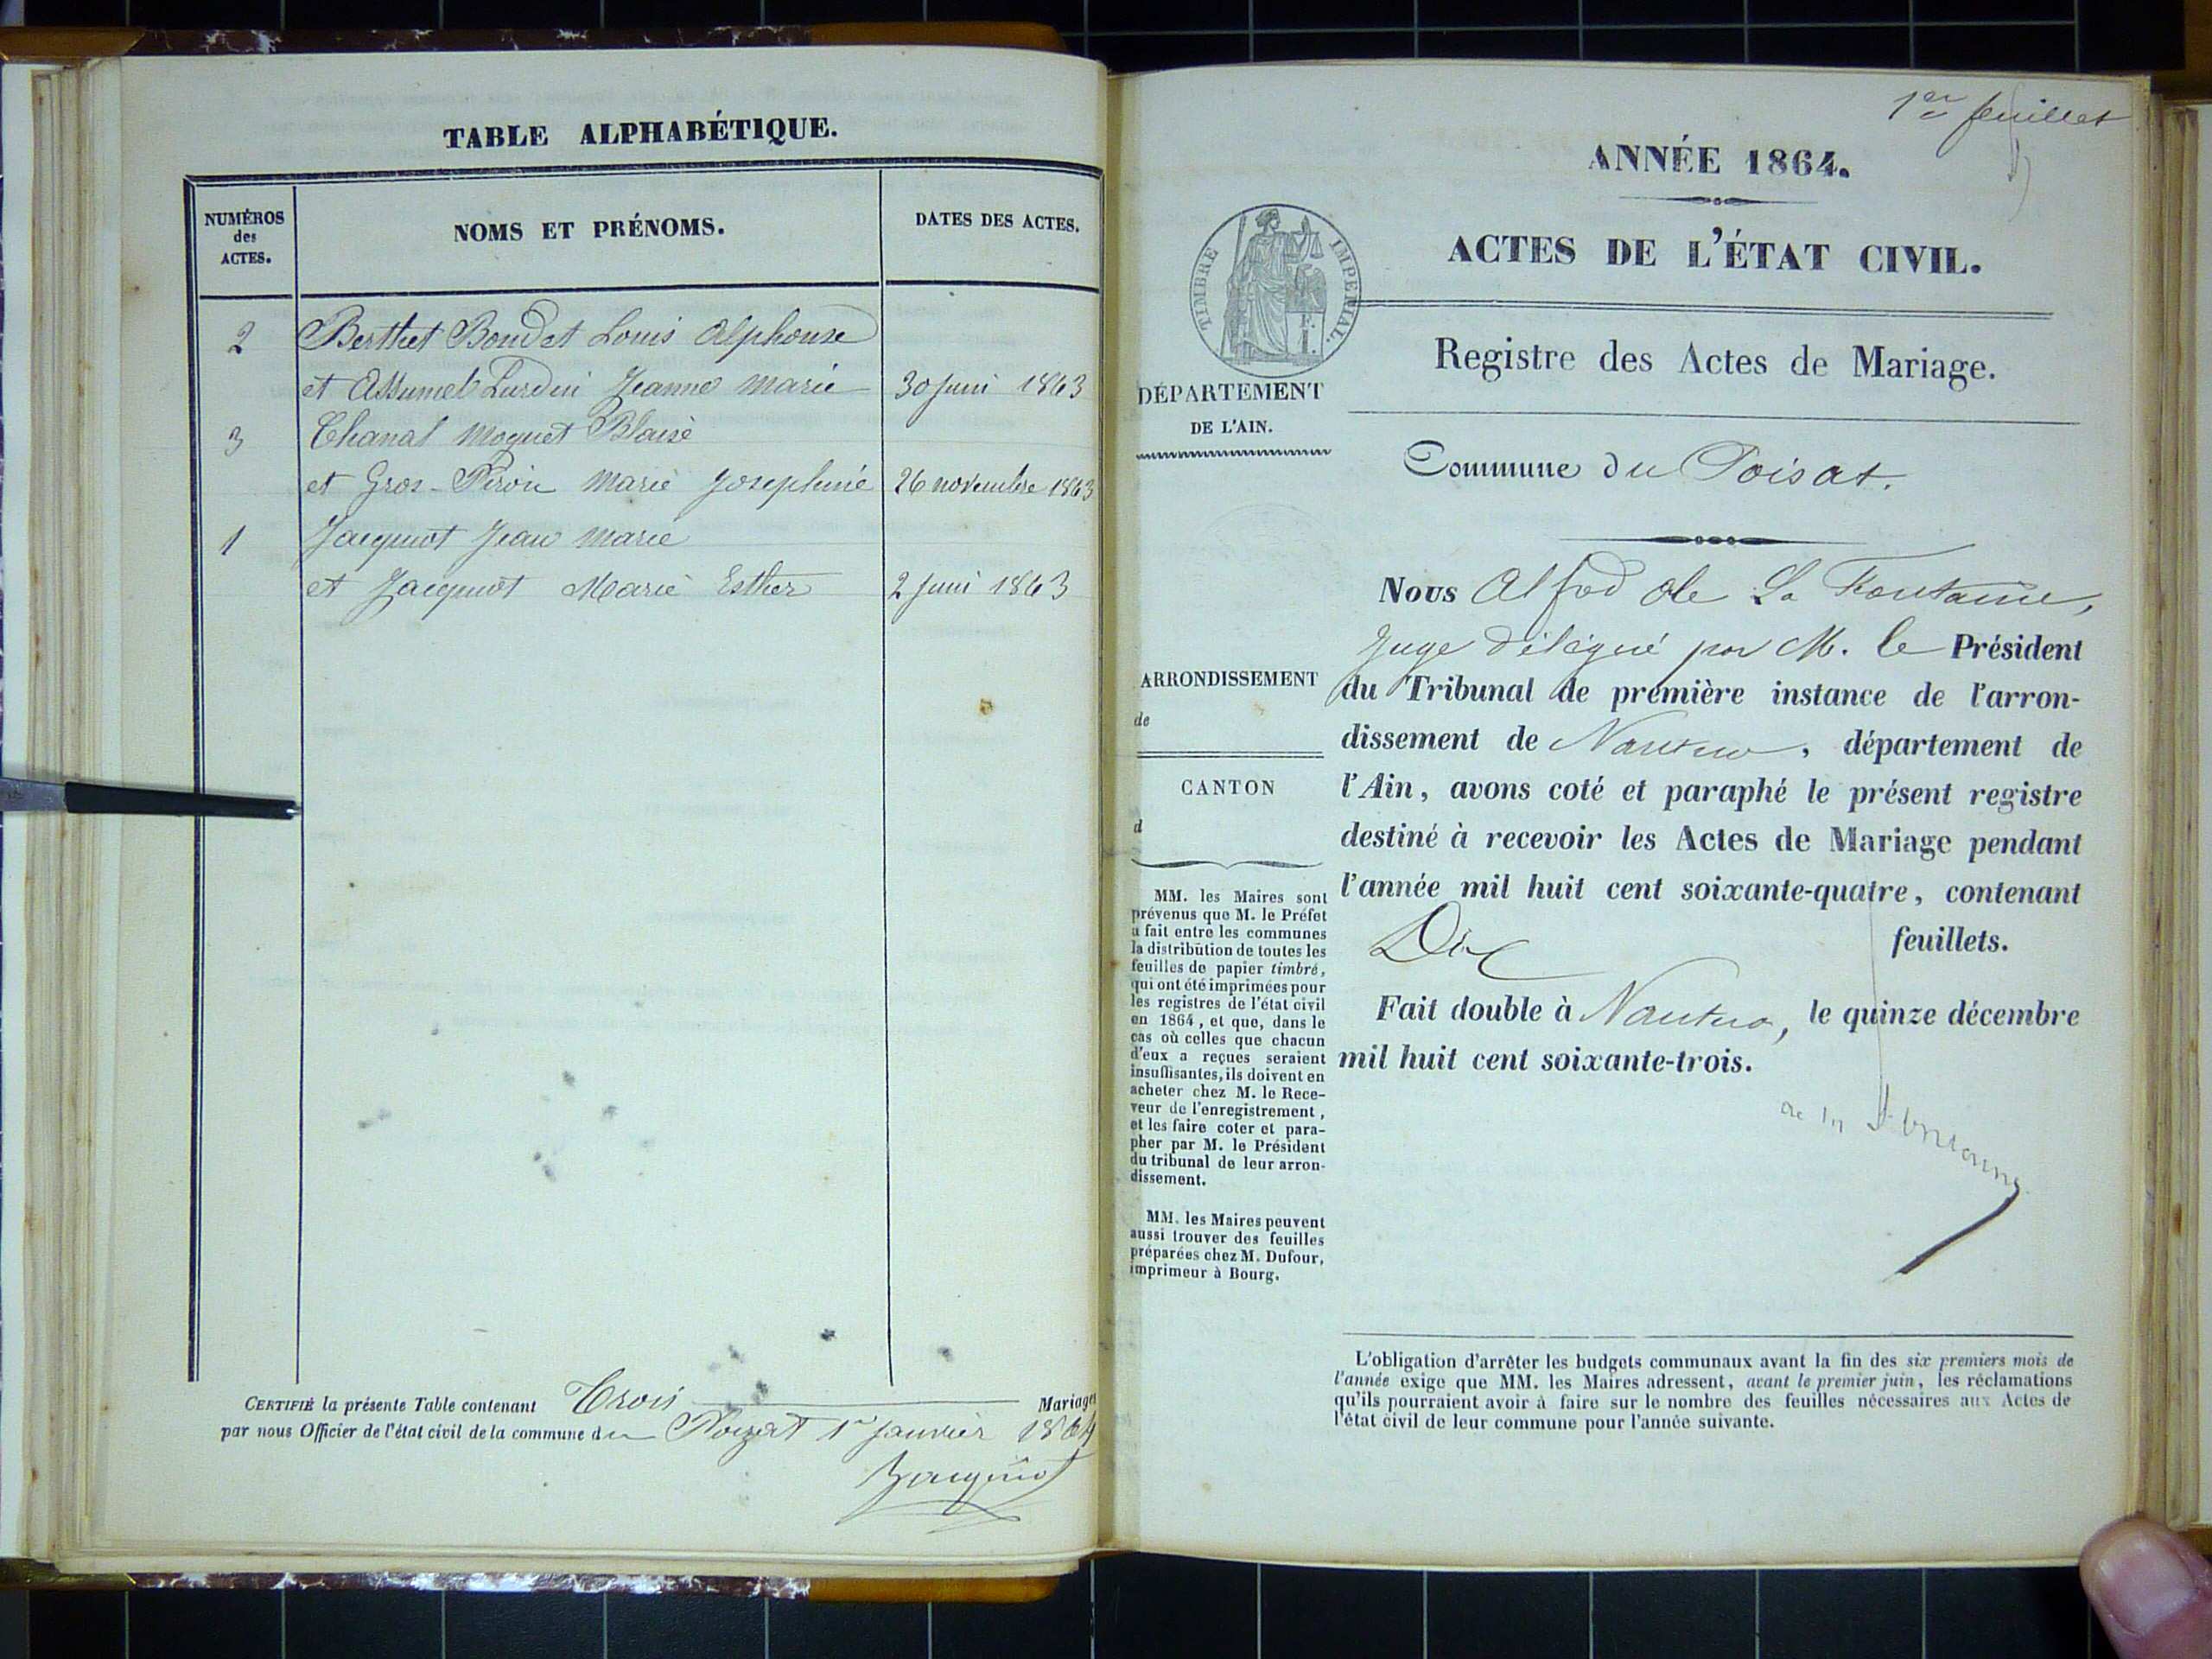 TABLE ALPHABÉTIQUE.
NUMÉROS
des
ACTES.
NOMS ET PRÉNOMS.
DATES DES ACTES.
2 Berthet Bondet Louis Alphonse
et Assumel Lurdin Jeanne Marie 30 Juin 1863
3 Chanal Moquet Blaise
et Gros-Piron Marie Josephine 26 novembre 1863
1 Jacquiot Jean Marie
et Jacquiot Marie Esther 2 Juin 1863
CERTIFIÉ la présente Table contenant Trois Mariages
par nous Officier de l'état civil de la commune du Poizat 1er Janvier 1864
Jacquiot
1er feuillet
ANNÉE 1864.
ACTES DE L'ÉTAT CIVIL.
TIMBRE IMPÉRIAL.
Registre des Actes de Mariage.
DÉPARTEMENT
DE L'AIN.
Commune du Poisat.
ARRONDISSEMENT
de
CANTON
d
MM. les Maires sont
prévenus que M. le Préfet
a fait entre les communes
la distribution de toutes les
feuilles de papier timbré,
qui ont été imprimées pour
les registres de l'état civil
en 1864, et que, dans le
cas où celles que chacun
d'eux a reçues seraient
insuffisantes, ils doivent en
acheter chez M. le Rece-
veur de l'enregistrement,
et les faire coter et para-
pher par M. le Président
du tribunal de leur arron-
dissement.
MM. les Maires peuvent
aussi trouver des feuilles
préparées chez M. Dufour,
imprimeur à Bourg.
Nous Alfod de La Fontaine,
Juge délégué par M. le Président
du Tribunal de première instance de l'arron-
dissement de Nantua, département de
l'Ain, avons coté et paraphé le présent registre
destiné à recevoir les Actes de Mariage pendant
l'année mil huit cent soixante-quatre, contenant
Dix feuillets.
Fait double à Nantua, le quinze décembre
mil huit cent soixante-trois.
de la Fontaine
L'obligation d'arrêter les budgets communaux avant la fin des six premiers mois de
l'année exige que MM. les Maires adressent, avant le premier juin, les réclamations
qu'ils pourraient avoir à faire sur le nombre des feuilles nécessaires aux Actes de
l'état civil de leur commune pour l'année suivante.